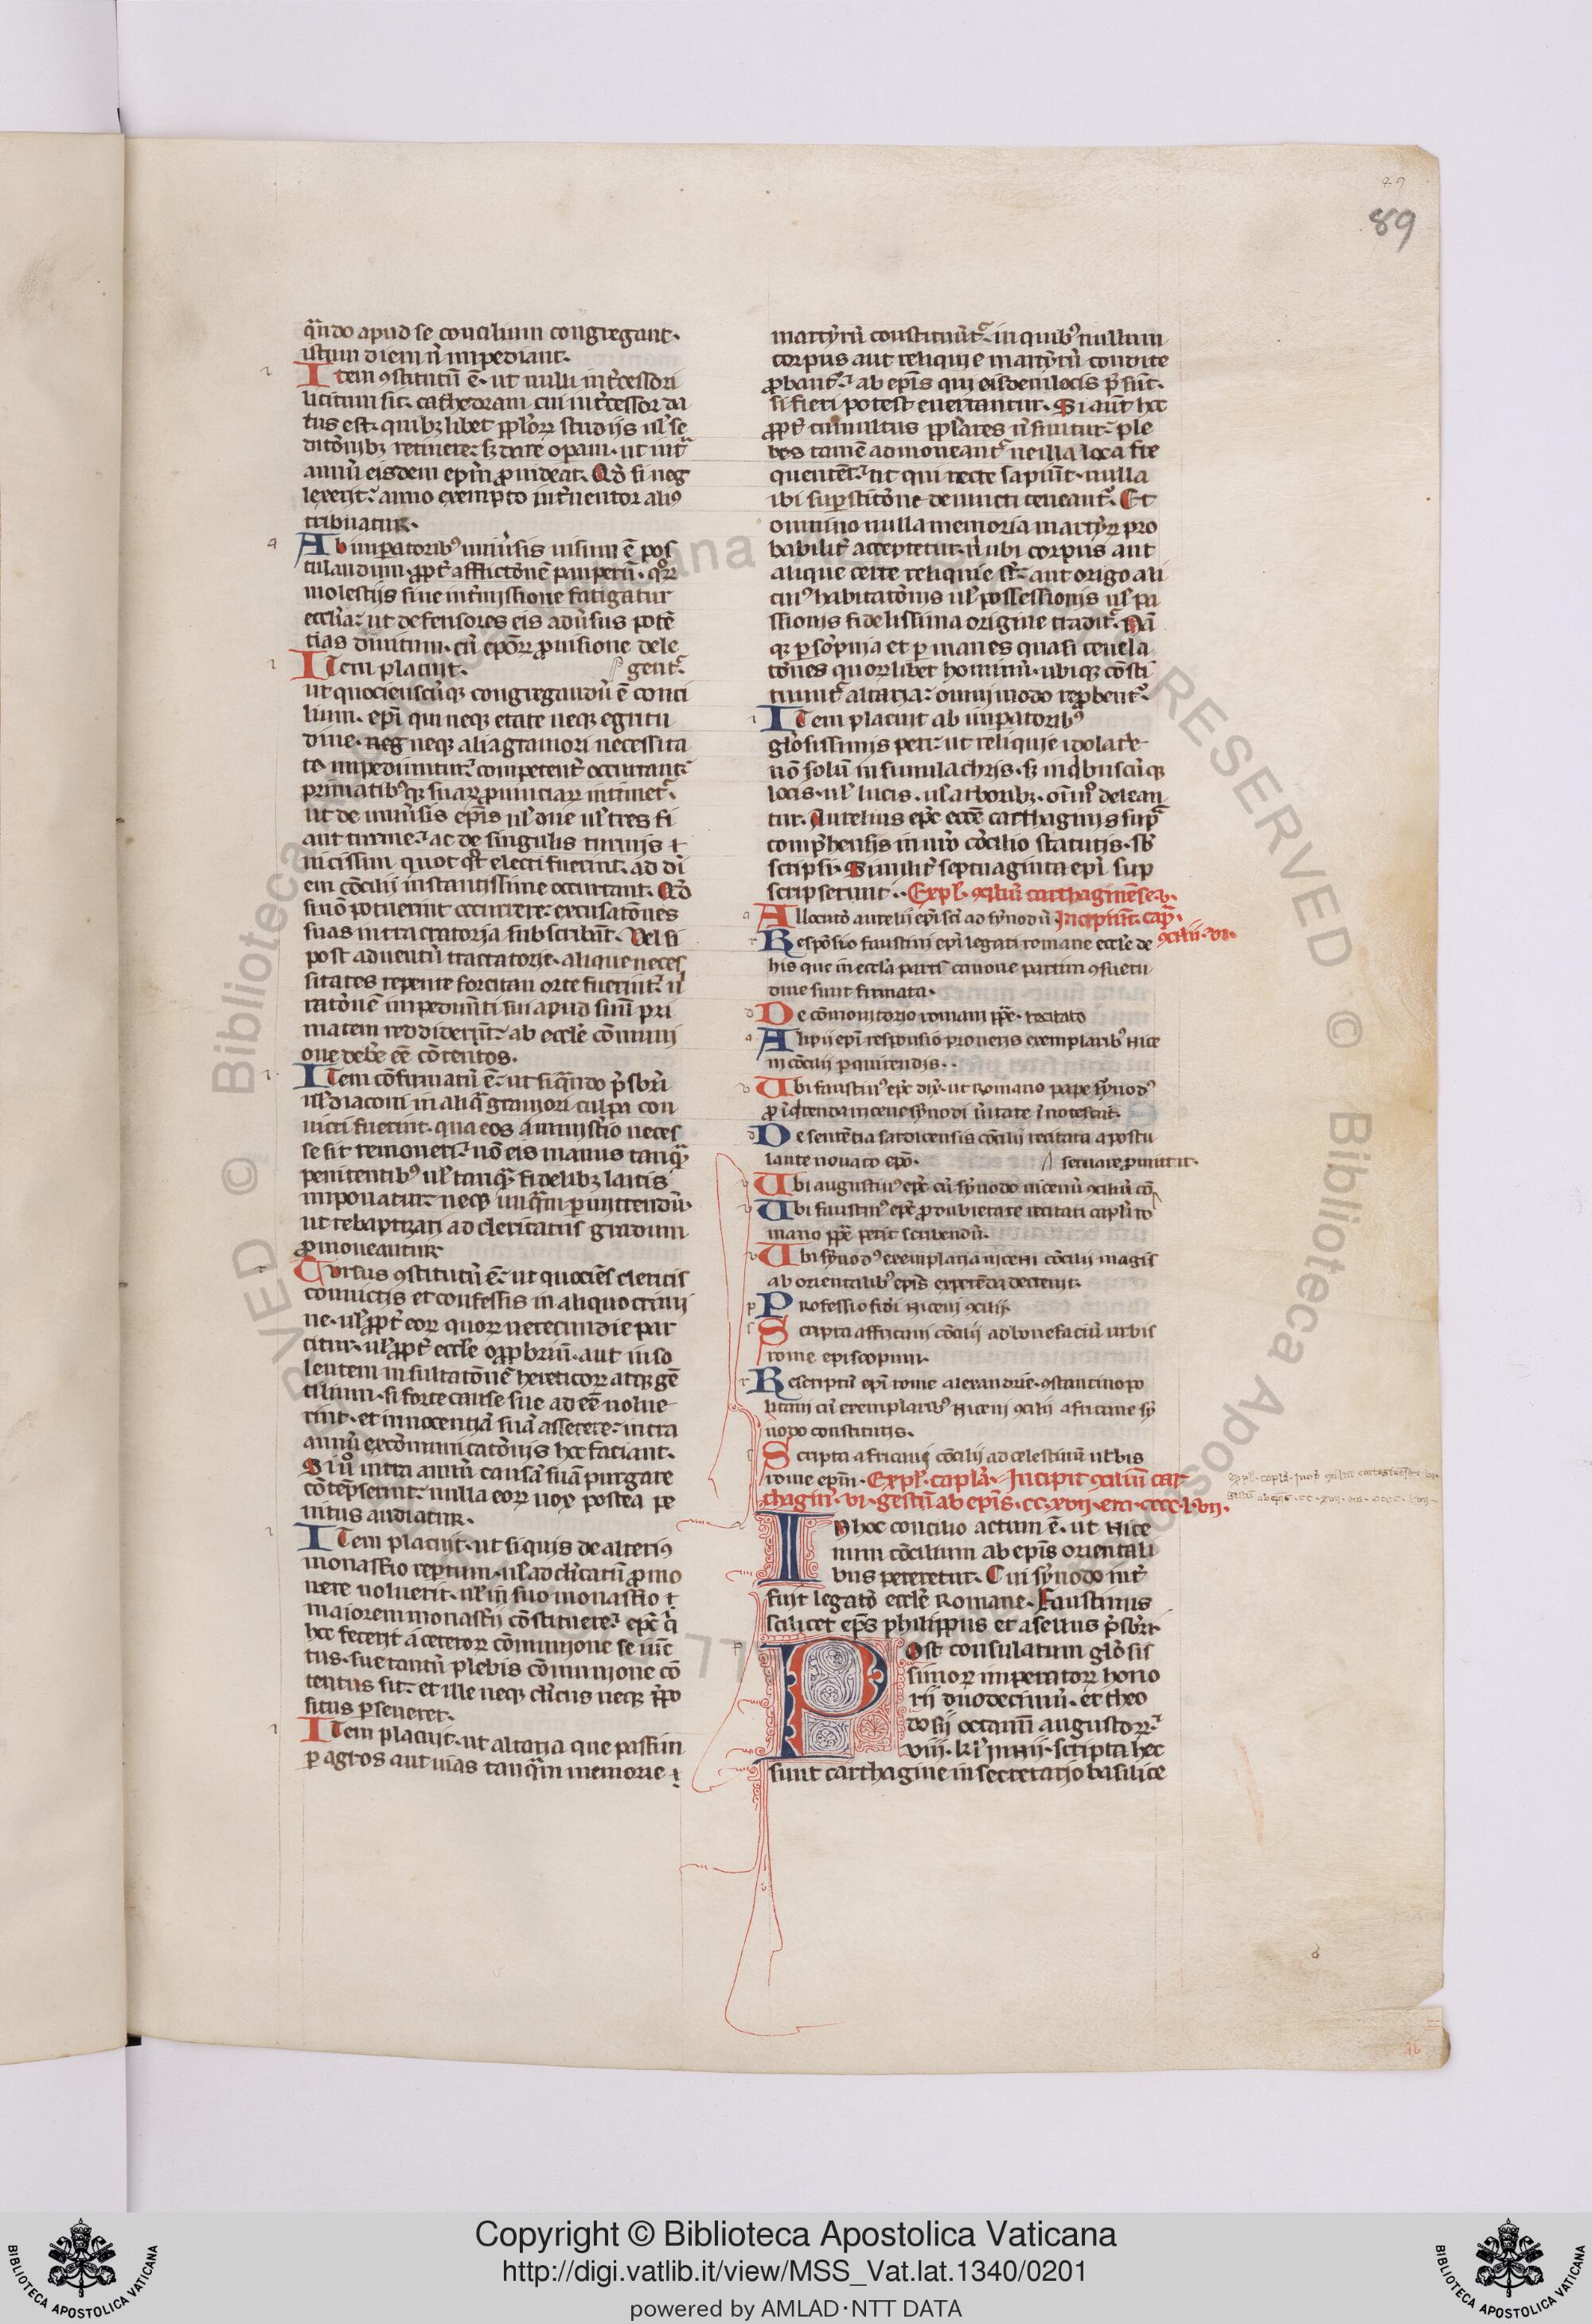 89
89
q̄ndo apud se concilium congregant·
istum diem n̄ impediant·
Item ꝯstitutū ē· ut nulli int̄cessori
licitum sit· cathedram cui int̄cessor da
tus est· quibꝫ libet ppl'oꝝ studijs ul' se
ditōnibꝫ retinere· sꝫ dare opam· ut int̄
annū eisdem ep̄m ꝓuideat· Qd̄ si neg
lexerit· anno exempto int̄uentor ali9
tribuatur·
Ab impatorib9 uniūsis uisum ē pos
tulandum· ꝓpt̄ afflictōnē pauperū· qꝝ
molestijs sine int̄missione fatigatur
eccl'ia· ut defensores eis adūsus potē
tias diuitum· cū ep̄oꝝ ꝓuisione dele
Item placuit· gent̄·
ut quocienscūqꝫ congregandū ē conci
lium· ep̄i qui neqꝫ etate neqꝫ egritu
dine· neg neqꝫ alia grauiori necessita
te impediuntur· competent̄ occurrant·
primatib9qꝫ suaꝝ ꝓuinciaꝝ intimet̄·
ut de uniūsis ep̄is ul' due ul' tres fi
ant turme· ac de singulis turmis t
uicissim quot qt̄ electi fuerint· ad di
em cōcilij instantissime occurrant· Qd̄
si nō potuerint occurrere· excusatōnes
suas in tractatoria subscribāt· Vel si
post aduentū tractatorie· alique neces
sitates repente forsitan orte fuerint· n̄
ratōnē impedimti sui apud suū pri
matem reddiderīt· ab eccl'e cōmuni
one debe'e eē cōtentos·
Item cōfirmatū ē· ut si q̄ndo p̄sbri
ul' diaconi in aliq̄ grauiori culpa con
uicti fuerint· qua eos a minist'io neces
se sit remoueri· nō eis manus tanq̄
penitentib9 ul' tanq̄ fidelibꝫ laicis
imponatur· neqꝫ unq̄m ꝑmittendū·
ut rebaptizati ad clericatus gradum
ꝓmoueantur
Rursus ꝯstitutū ē· ut quociēs clericis
conuictis et confessis in aliquo crimi
ne· ul' ꝓpt̄ eoꝝ quoꝝ uerecundie par
citur· ul' ꝓpt̄ eccl'e opprobriū· aut inso
lentem insultatōnē hereticoꝝ atqꝫ gē
tilium· si forte cause sue adeē uolue
rint· et innocentiā suā asserere· intra
annū excōmunicatōnis hoc faciant·
Si u° intra annū causā suā purgare
cōtēpserint· nulla eoꝝ uox postea pe
nitus audiatur·
Item placuit· ut siquis de alteri9
monast'io reptum· ul' ad cl'icatū ꝓmo
uere uoluerit· ul' in suo monast'io t
maiorem monast'ij cōstituere· ep̄c q̄
hoc fecerit a ceteroꝝ cōmunione seiūc
tus· sue tantū plebis cōmunione cō
tentus sit· et ille neqꝫ cl'icus neqꝫ p̄po
situs pseueret·
Item placuit· ut altaria que passim
ꝑ agros aut uias tanq̄m memorie
martyrū constituūt̄· in quib9 nullum
corpus aut reliquie martyrū condite
ꝓbant̄· ab ep̄is qui eisdem locis p̄sūt·
si fieri potest euertantur· Si aūt hoc
ꝓpt̄ tumultus ppl'ares n̄ sinitur· ple
bes tamē admoneant̄ ne illa loca fre
quentēt· ut qui recte sapiūt· nulla
ibi supstitōne deuincti teneant̄· Et
omnino nulla memoria martyꝝ pro
babilit̄ acceptetur· n̄ ubi corpus aut
alique certe reliquie st̄· aut origo ali
cui9 habitatōnis ul' possessionis ul' pa
ssionis fidelissima origine tradit̄· Nā
qꝫ ꝑ sōpnia et ꝑ inanes quasi reuela
tōnes quoꝝlibet hominū· ubiqꝫ cōsti
tuunt̄ altaria· omnimodo reꝓbent̄·
Item placuit ab impatorib9
gl'osissimis peti· ut reliquie idolat'e
nō solū in simulachris· sꝫ in q̄buscūqꝫ
locis· ul' lucis· ul' arboribꝫ· oīno delean
tur· Aurelius ep̄c eccē carthaginis sup̄
comp̄hensis in nr̄o cōcilio statutis· sb̄
scripsi· Similit̄ septuaginta ep̄i sup
scripserunt·· Expl' ꝯciliū carthaginēse·v·
Allocutō aurelii ep̄i sc̄i ad synodū· Incipiūt cap̄·
Respōsio faustini ep̄i legati romane eccl'e de ꝯcilii· vi·
his que in eccl'a partī canone partim ꝯsuetu
dine sunt firmata·
De cōmonitorio romani pp̄e· recitato
Alipii ep̄i responsio pro ueris exemplarib9 Nice
ni cōcilii ꝑquirendis··
Ubi faustin9 ep̄c dix̄· ut Romano pape synod9
ꝓ īq̄renda nicene synodi ūitate īnotescat·
De sententia sardicensis cōcilii recitata apostu
lante nouato ep̄o· seruare ꝓmittit·
Ubi augustin9 ep̄c cū synodo nicenū ꝯciliū cō
Ubi faustin9 ep̄c ꝓ dubietate recitati capl'i ro
mano pp̄e petit scribendū·
Ubi synod9 exemplaria niceni cōcilii magis
ab orientalib9 ep̄is expetēda decreuit·
Professio fidei Niceni ꝯcilii·
Scripta affricani cōcilii ad bonefaciū urbis
rome episcopum·
Rescriptū ep̄i rome alexandrie· ꝯstantinopo
litani cū exemplarib9 Niceni ꝯcilii africane sy
nodo constitutis·
Scripta africani cōcilii ad celestinū urbis
rome ep̄m· Expl' capl'a· Incipit ꝯciliū car
thagin̄· vi· gestū ab ep̄is· cc·xvii· era· cccc·l·vii·
In hoc concilio actum ē· ut Nice
num cōcilium ab ep̄is orientali
bus peteretur· Cui synodo int̄
fuit legatō eccl'e Romane· Faustinus
scilicet ep̄s philippus et asellus p̄sbri·
Post consulatum gl'osis
simoꝝ imperatoꝝ hono
rii duodecimū· et theo
dosii octauū augustoꝝ·
viii· kl' iunii· scripta hec
sunt carthagine in secretario basilice
Copyright © Biblioteca Apostolica Vaticana
http://digi.vatlib.it/view/MSS_Vat.lat.1340/0201
powered by AMLAD·NTT DATA
BIBLIOTECA APOSTOLICA VATICANA
BIBLIOTECA APOSTOLICA VATICANA